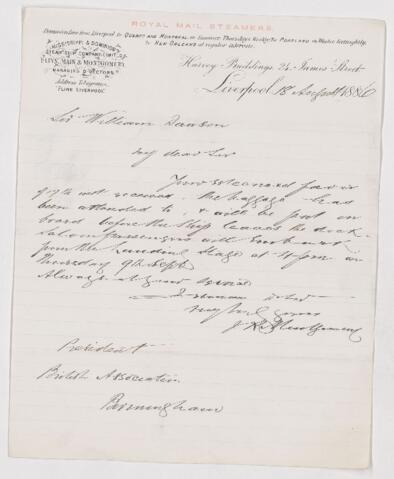 ROYAL MAIL STEAMERS.
Steamers leave from Liverpool to QUEBEC AND MONTREAL in Summer Thursdays Weekly, to PORTLAND in Winter fortnightly,
to NEW ORLEANS at regular intervals.
MISSISSIPPI & DOMINION
STEAM SHIP COMPANY LIMITED
FLINN, MAIN & MONTGOMERY
MANAGING DIRECTORS
Address Telegrams
"FLINN LIVERPOOL"
Harvey Buildings, 24 James Street
Liverpool, 18 August 1886
Sir William Dawson
My dear Sir
Your esteemed favor
of 17th inst received. The baggage had
been attended to, & will be put on
board before the ship leaves the dock
Saloon passengers will embark
from the Landing Stage at 4 pm on
Thursday 9th Sept.
Always at your service
I remain
Montgomery
President
British Association
Birmingham